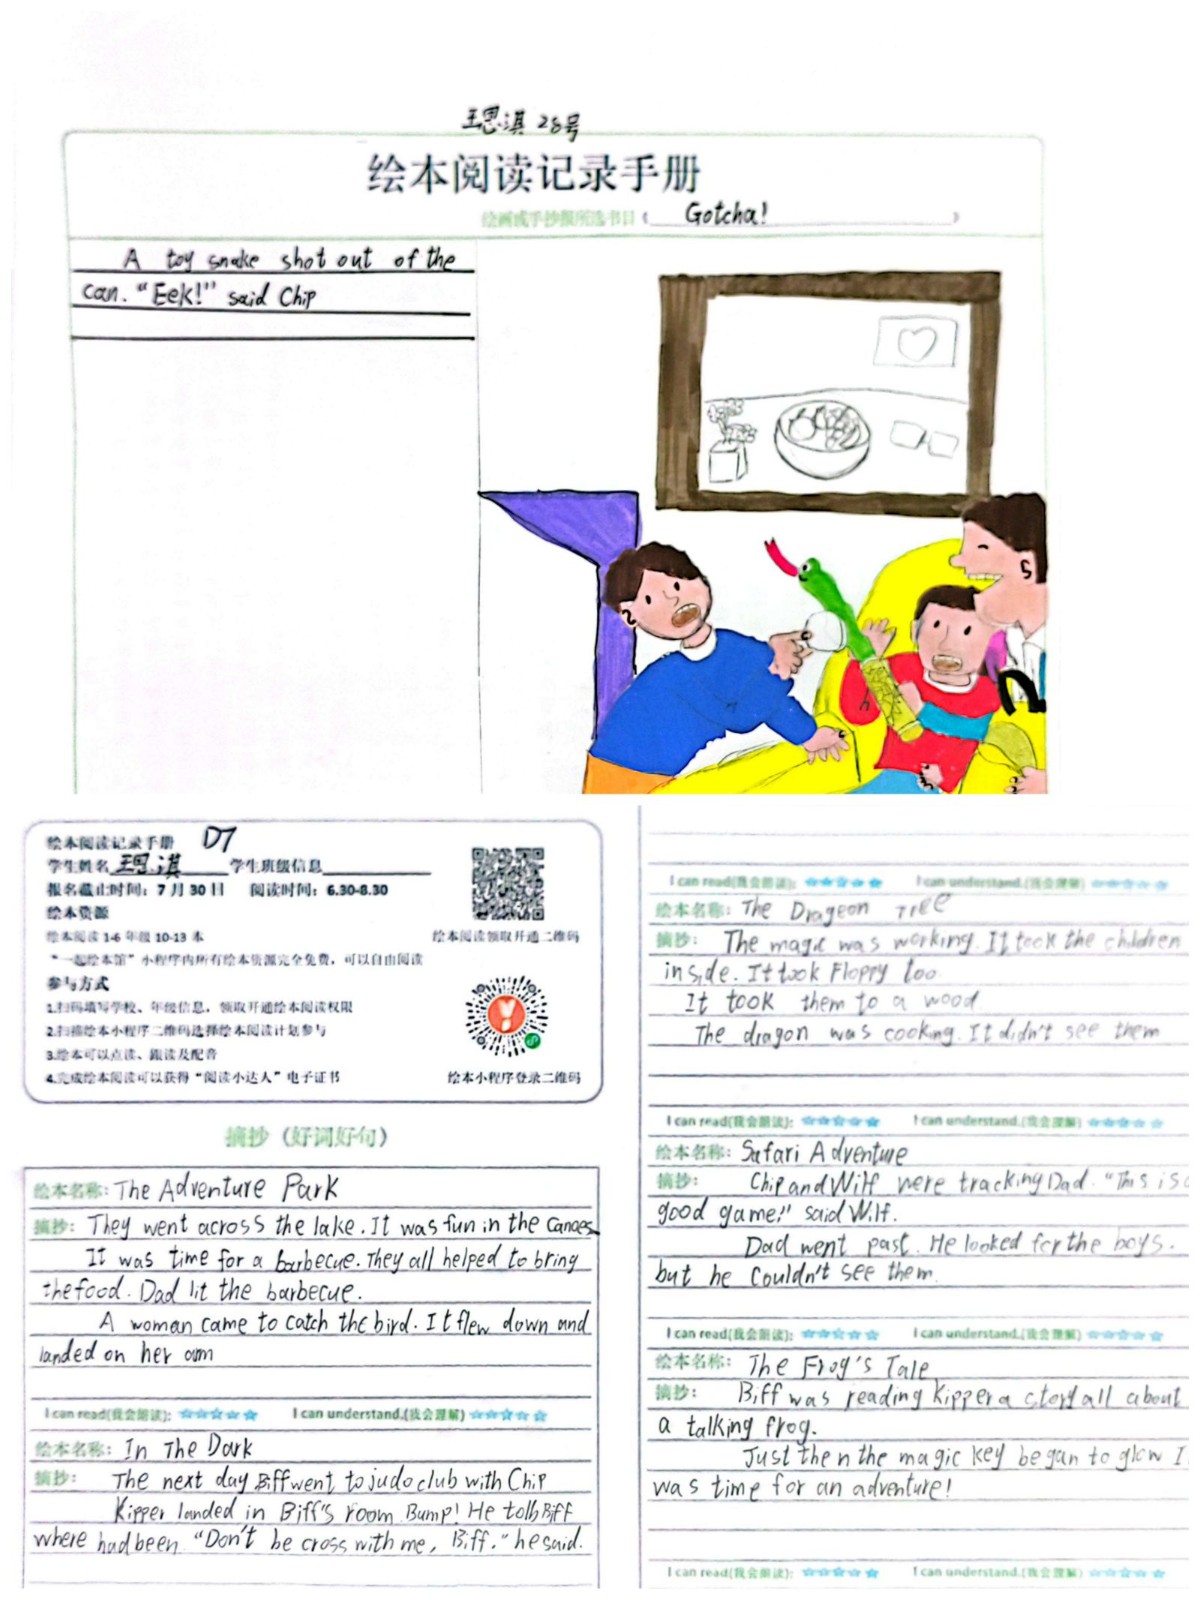 王思淇 28号
绘本阅读记录手册
绘画或手抄报所选书目《 Gotcha! 》
A toy snake shot out of the
can. "Eek!" said Chip
绘本阅读记录手册 D7
学生姓名 王思淇 学生班级信息
报名截止时间：7 月 30 日 阅读时间：6.30-8.30
绘本资源
绘本阅读 1-6 年级 10-13 本
绘本阅读领取开通二维码
“一起绘本馆”小程序内所有绘本资源完全免费，可以自由阅读
参与方式
1.扫码填写学校、年级信息，领取开通绘本阅读权限
2.扫描绘本小程序二维码选择绘本阅读计划参与
3.绘本可以点读、跟读及配音
4.完成绘本阅读可以获得“阅读小达人”电子证书
绘本小程序登录二维码
摘抄（好词好句）
绘本名称: The Adventure Park
摘抄: They went across the lake. It was fun in the canoes
It was time for a barbecue. They all helped to bring
the food. Dad lit the barbecue.
A woman came to catch the bird. It flew down and
landed on her arm
I can read(我会朗读): ☆☆☆☆☆ I can understand.(我会理解) ☆☆☆☆☆
绘本名称: In The Dark
摘抄: The next day Biff went to judo club with Chip
Kipper landed in Biff's room Bump! He tolb Biff
where had been. "Don't be cross with me, Biff." he said.
I can read(我会朗读): ☆☆☆☆☆ I can understand.(我会理解) ☆☆☆☆☆
绘本名称: The Drageon Tree
摘抄: The magic was working. It took the children
inside. It took Floppy too
It took them to a wood
The dragon was cooking. It didn't see them
I can read(我会朗读): ☆☆☆☆☆ I can understand.(我会理解) ☆☆☆☆☆
绘本名称: Safari Adventure
摘抄: Chip and Wilf were tracking Dad. "This is a
good game!" said Wilf.
Dad went past. He looked for the boys.
but he couldn't see them.
I can read(我会朗读): ☆☆☆☆☆ I can understand.(我会理解) ☆☆☆☆☆
绘本名称: The Frog's Tale
摘抄: Biff was reading Kipper a story all about
a talking frog.
Just then the magic key began to glow I
was time for an adventure!
I can read(我会朗读): ☆☆☆☆☆ I can understand.(我会理解) ☆☆☆☆☆